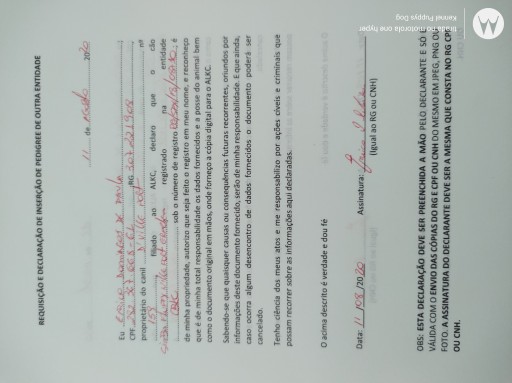 REQUISIÇÃO E DECLARAÇÃO DE INSERÇÃO DE PEDIGREE DE OUTRA ENTIDADE
11 de 2020
Eu
CPF RG
proprietário do canil nº
filiado ao ALKC, declaro que o cão
registrado na entidade
sob o número de registro é
de minha propriedade, autorizo que seja feito o registro em meu nome, e reconheço
que é de minha total responsabilidade os dados fornecidos e a posse do animal bem
como o documento original em mãos, onde forneço a cópia digital para o ALKC.
Sabendo-se que quaisquer causas ou consequências futuras recorrentes, oriundos por
informações deste documento fornecido, serão de minha responsabilidade. E que ainda,
caso ocorra algum desencontro de dados fornecidos o documento poderá ser
cancelado.
Tenho ciência dos meus atos e me responsabilizo por ações cíveis e criminais que
possam recorrer sobre as informações aqui declaradas.
O acima descrito é verdade e dou fé
Data: 11 /08 /2020 Assinatura:
(Igual ao RG ou CNH)
OBS: ESTA DECLARAÇÃO DEVE SER PREENCHIDA A MÃO PELO DECLARANTE E SÓ
VÁLIDA COM O ENVIO DAS CÓPIAS DO RG E CPF OU CNH DO MESMO EM JPEG, PNG OU
FOTO. A ASSINATURA DO DECLARANTE DEVE SER A MESMA QUE CONSTA NO RG CP
OU CNH.
tirada no motorola one hyper
Kennel Puppys Dog